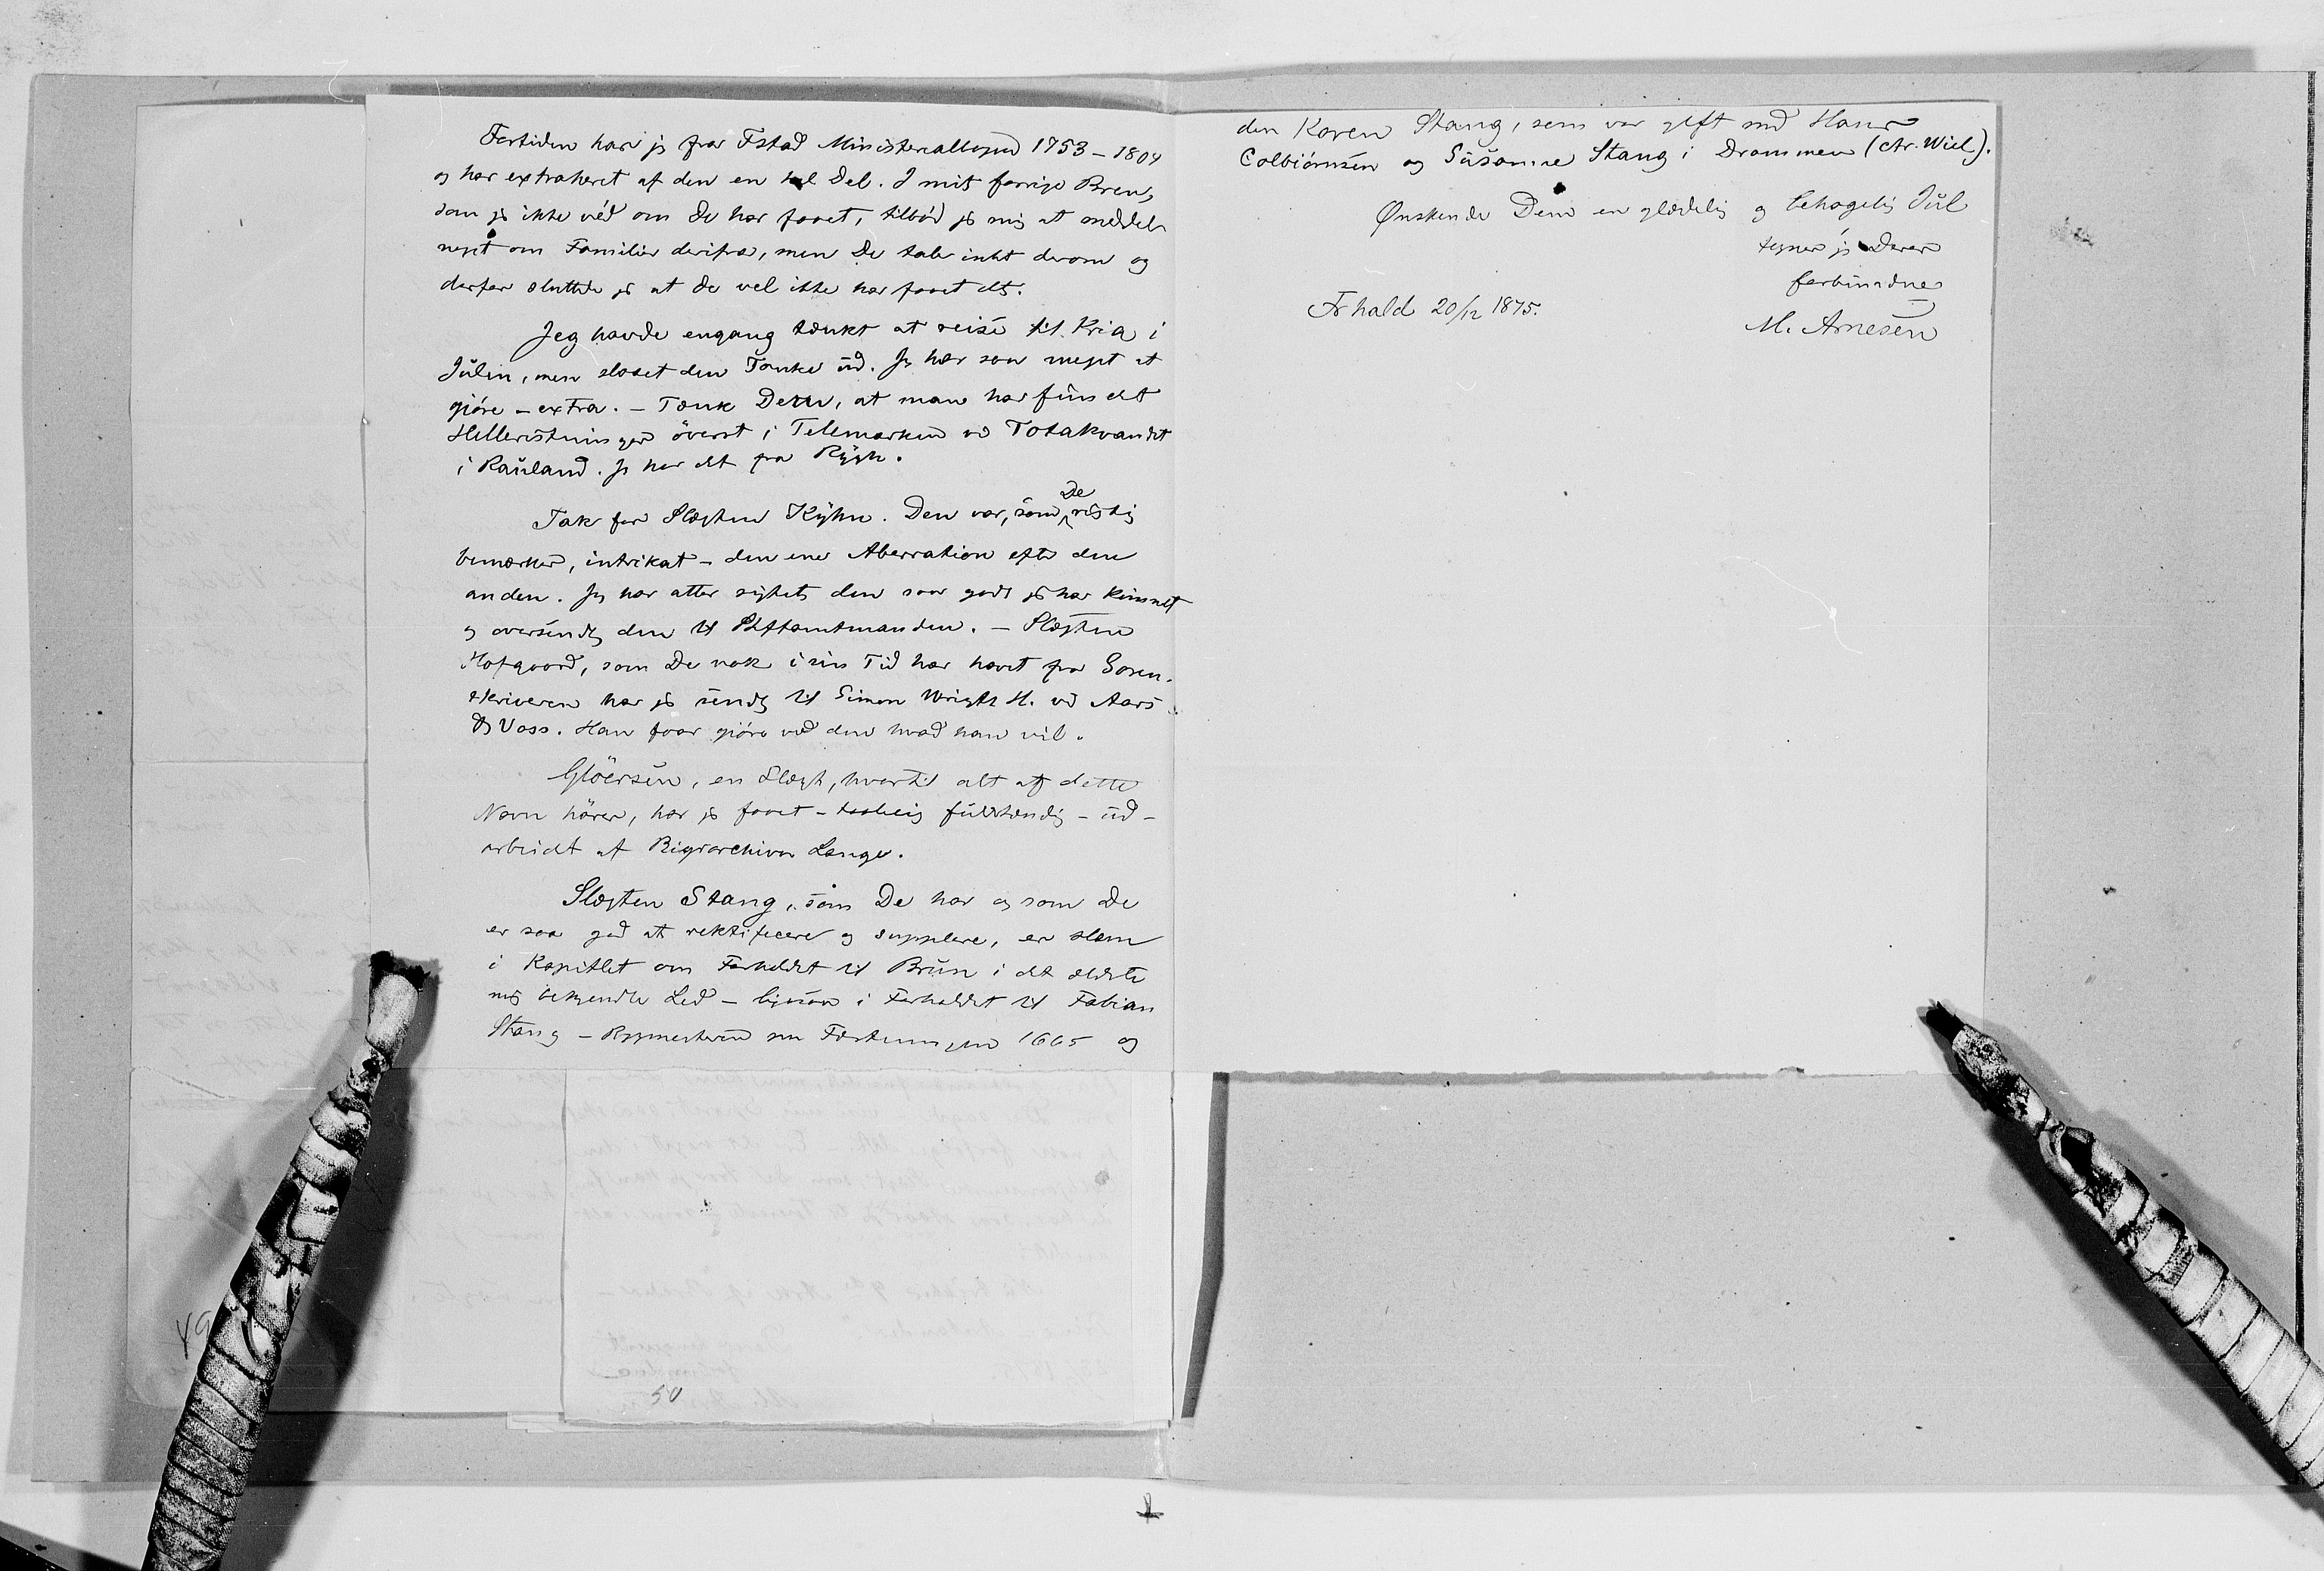 Fortiden har jeg fra Fstad Ministerialbogen 1753-1804
og har extraheret af den en hel Del. I mit forrige Brev,
som jeg ikke véd om De har faaet, tilbód jeg mig at meddele
noget om Familier derifra, men De taler intet derom og
derfor sluttede jeg at De vel ikke har faaet det.
Jeg havde engang tænkt at reise til Kria i
Julen, men slaaet den Tanke ud. Jeg har saa meget at
gjöre - extra. - Tænk Dem, at man har fundet
Helleristninger överst i Telemarken ved Totakvandet
i Rauland. Jeg har det fra Rygh.
Tak for Slægten Kyhn. Den var, som De rigtig
bemærker, intrikat - den ene Aberration efter den
anden. Jeg har atter rigtet den saa godt jeg har kunnet
og oversendt den til Stiftamtmanden. - Slægten
Hofgaard, som De nok i sin Tid har havt fra Soren-
skriveren har jeg sendt til Simon Wright H. ved Aars
& Voss. Han faar gjöre ved den hvad han vil.
Glöersen, en Slægt, hvortil alt af dette
Navn hörer, har jeg faaet - fuldstændig - ud-
arbeidet af Rigsarchivar Lange.
Slægten Stang, som De har og som De
er saa god at rektificere og supplere, er slem
i Kapitlet om Forholdet til Brun i det ældste
mig bekjendte Led - ligesaa i Forholdet til Fabian
Stang - Bygmesteren paa Fæstningen 1665 og
den Karen Stang, som var gift med Hans
Colbiörnsen og Susanne Stang i Drammen (cfr. Wiel).
Ønskende Dem en glædelig og behagelig Jul
tegner jeg Deres
forbundne
Fr hald 20/12 1875.
M. Arnesen
49
50